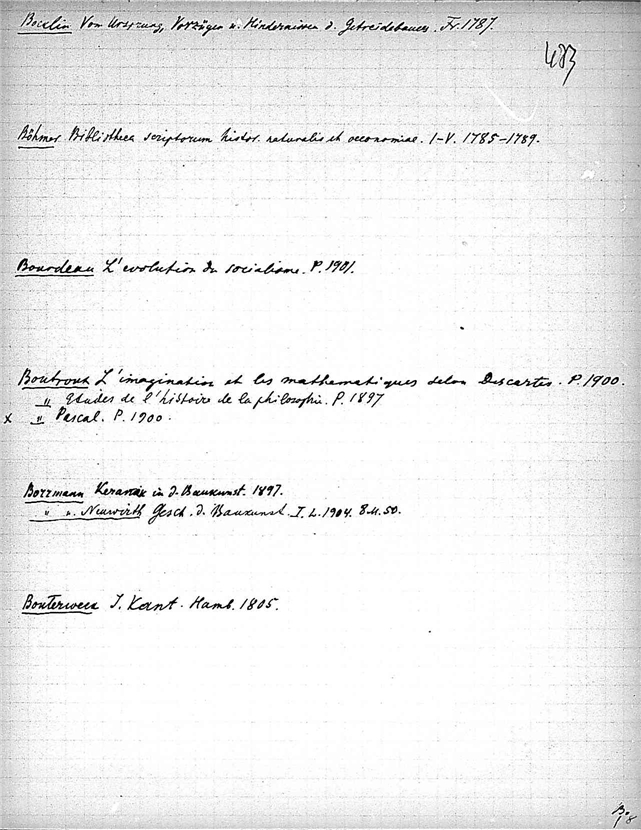 Vom Ursprung, Vorzügen u. Hindernissen d. Getreidebaues. Fr. 1787.
483
Böhmer Bibliotheca scriptorum histor. naturalis et oeconomiae. I-V. 1785-1789.
Bourdeau L'evolution du socialisme. P. 1901.
Boutroux L'imagination et les mathematiques selon Descartes. P. 1900.
" Etudes de l'histoire de la philosophie. P. 1897
x " Pascal. P. 1900.
Borrmann Keramik in d. Baukunst. 1897.
" u. Neuwirth Gesch. d. Baukunst. I. L. 1904. 8 M. 50.
Bouterweck I. Kant. Hamb. 1805.